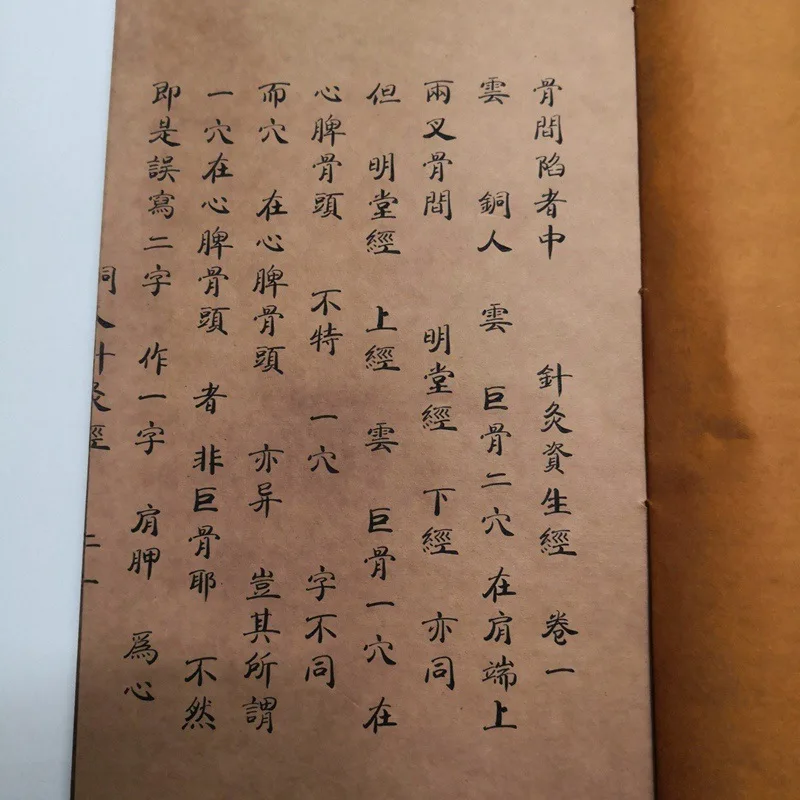 骨間陷者中 針灸資生經 卷一
雲 銅人 雲 巨骨二穴 在肩端上
兩叉骨間 明堂經 下經 亦同
但 明堂經 上經 雲 巨骨一穴 在
心脾骨頭 不特 一穴 字不同
而穴 在心脾骨頭 亦异 豈其所謂
一穴在心脾骨頭 者 非巨骨耶 不然
即是誤寫二字 作一字 肩胛 爲心
銅人針灸經